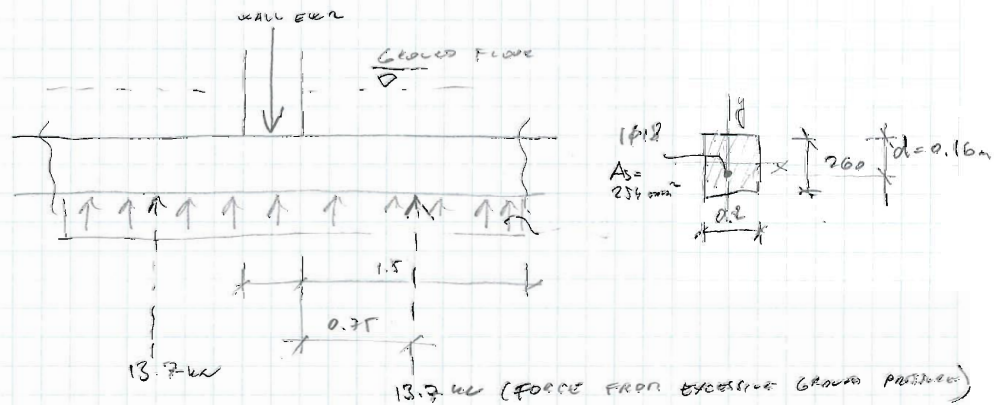 WALL
GROUND FLOOR
1ϕ18
As=
254 mm²
y
x
260
d=0.16m
0.2
1.5
0.75
13.7 kN
13.7 kN (FORCE FROM EXCESSIVE GROUND PRESSURE)